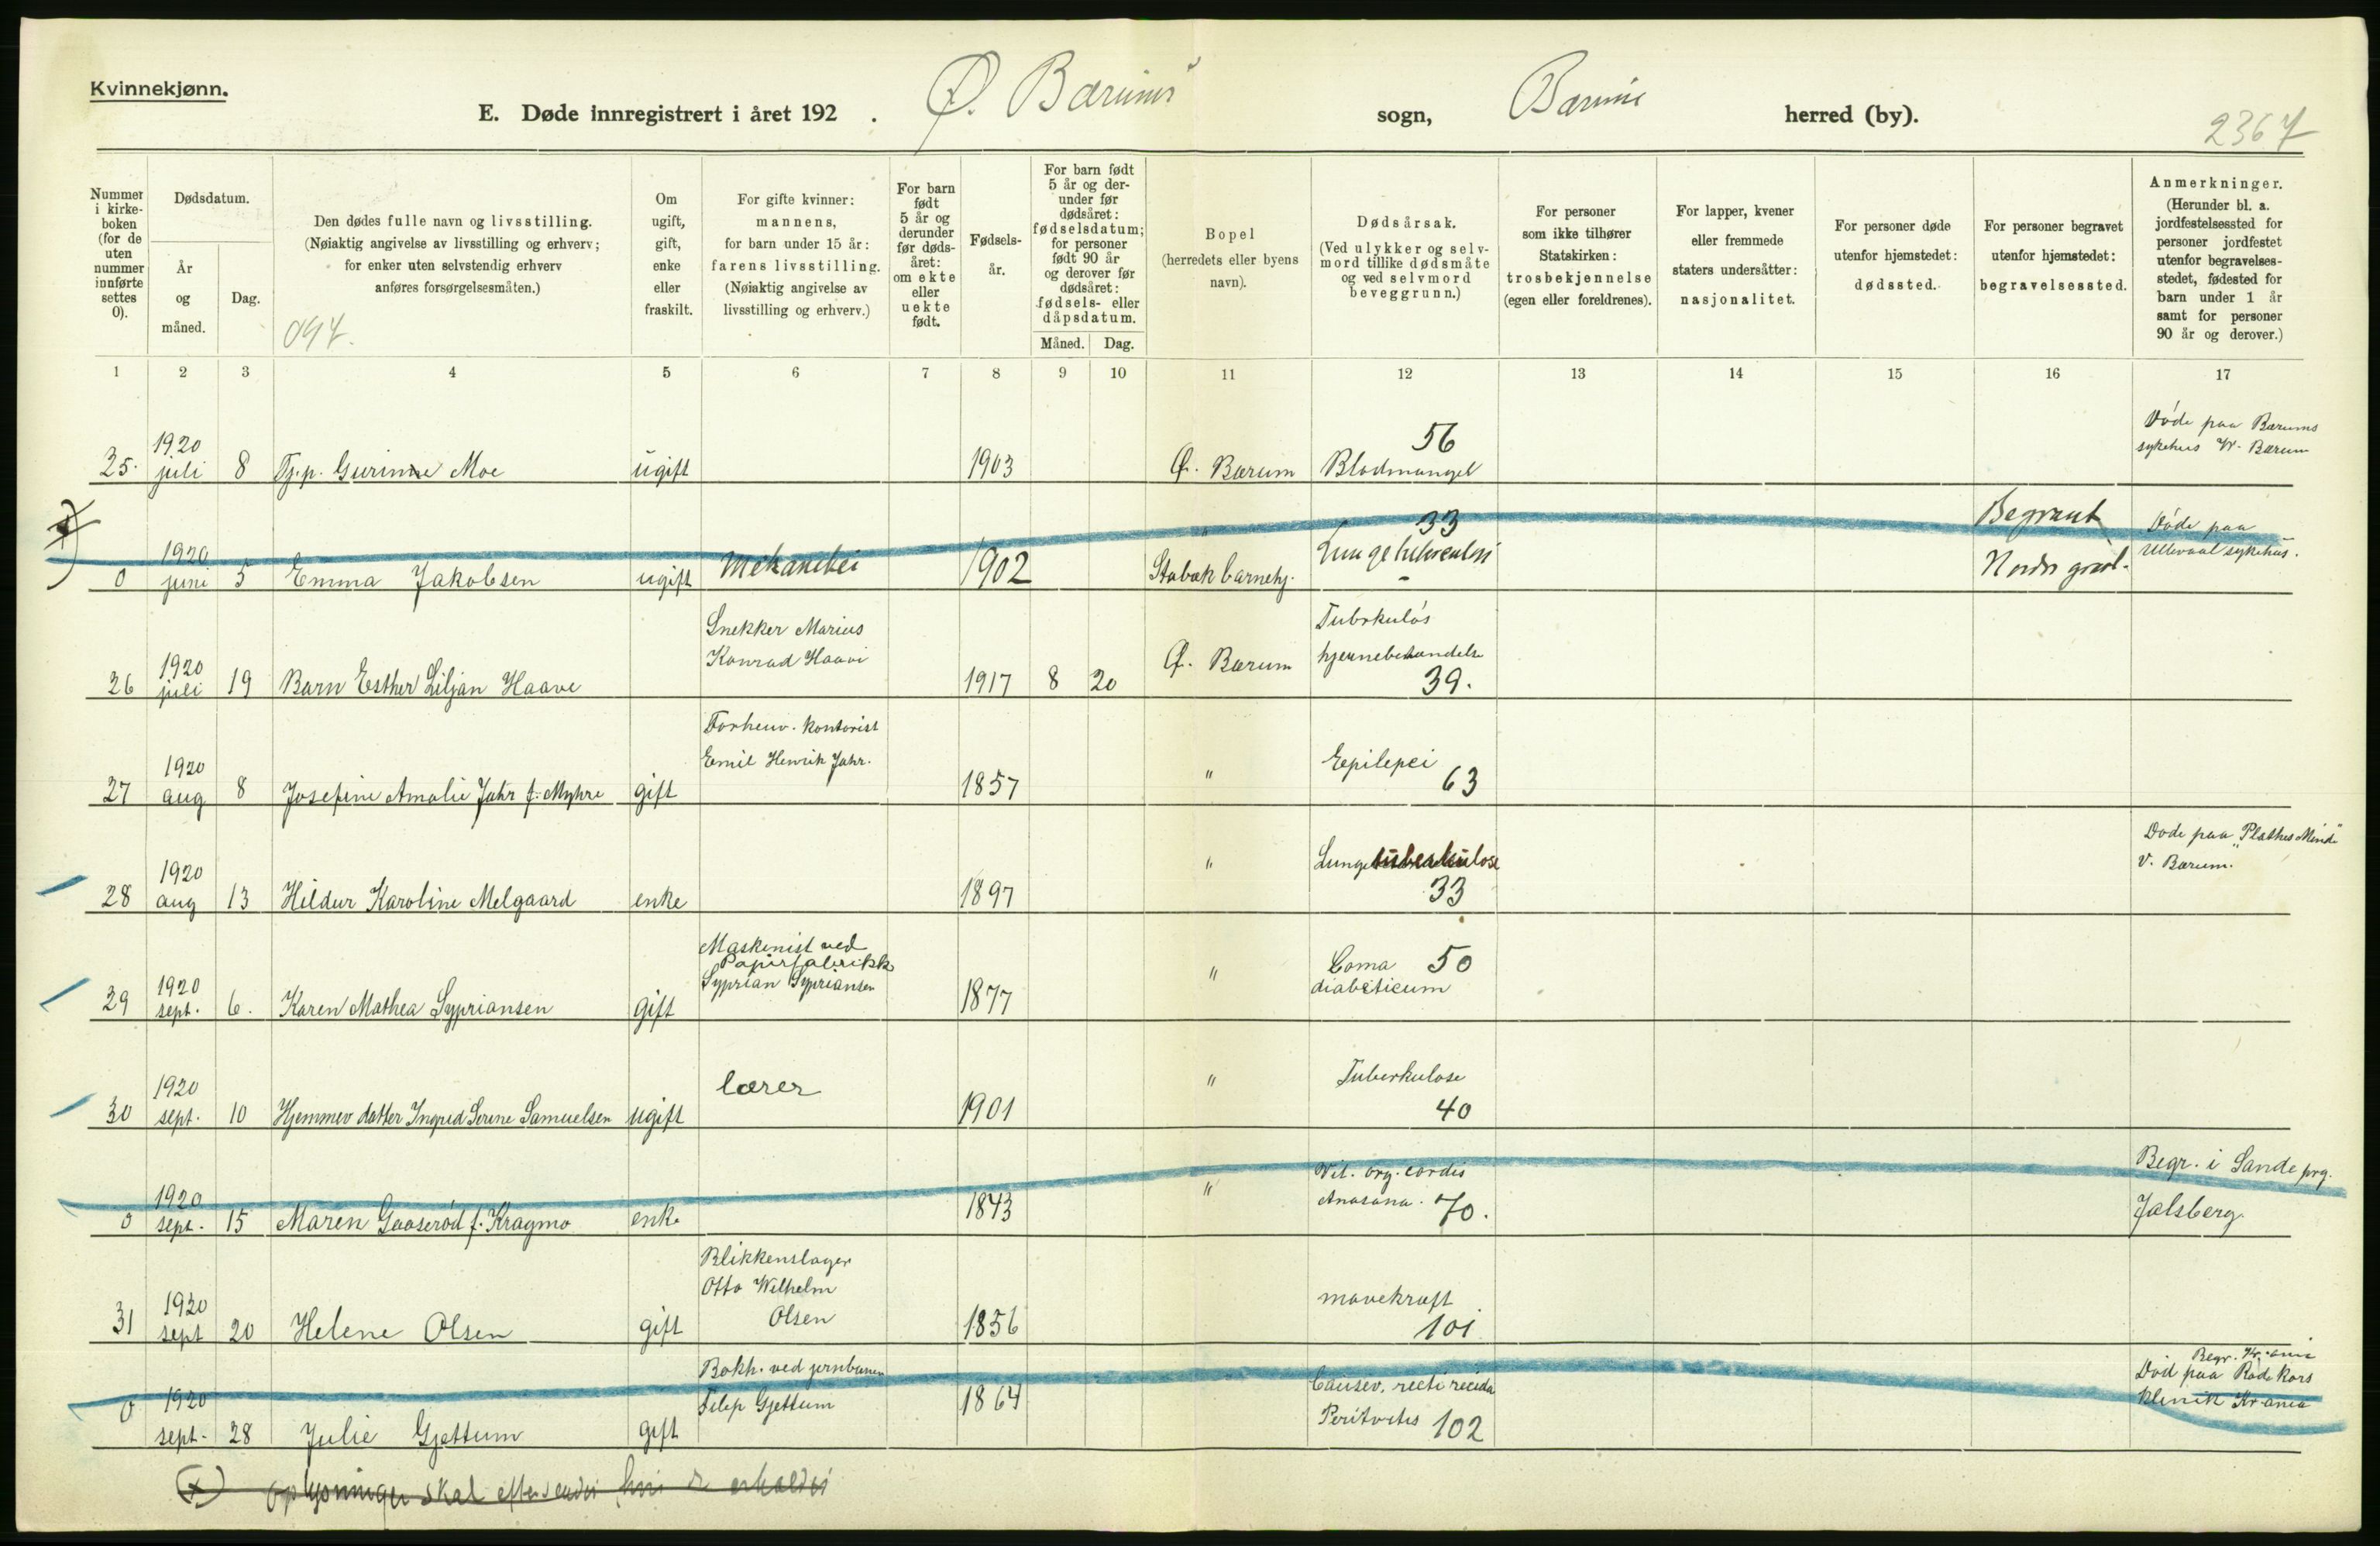 Kvinnekjønn.
E. Døde innregistrert i året 192 . Ø. Bærums sogn, Bærum herred (by).
2367
Nummer i kirkeboken (for de uten nummer innførte settes 0).
Dødsdatum.
År og måned.
Dag.
Den dødes fulle navn og livsstilling.
(Nøiaktig angivelse av livsstilling og erhverv;
for enker uten selvstendig erhverv
anføres forsørgelsesmåten.)
Om ugift, gift, enke eller fraskilt.
For gifte kvinner: mannens, for barn under 15 år: farens livsstilling. (Nøiaktig angivelse av livsstilling og erhverv.)
For barn født 5 år og derunder før dødsåret: om ekte eller uekte født.
Fødselsår.
For barn født 5 år og derunder før dødsåret: fødselsdatum; for personer født 90 år og derover før dødsåret: fødsels- eller dåpsdatum.
Måned. Dag.
Bopel (herredets eller byens navn).
Dødsårsak. (Ved ulykker og selvmord tillike dødsmåte og ved selvmord beveggrunn.)
For personer som ikke tilhører Statskirken: trosbekjennelse (egen eller foreldrenes).
For lapper, kvener eller fremmede staters undersåtter: nasjonalitet.
For personer døde utenfor hjemstedet: dødssted.
For personer begravet utenfor hjemstedet: begravelsessted.
Anmerkninger. (Herunder bl. a. jordfestelsessted for personer jordfestet utenfor begravelsesstedet, fødested for barn under 1 år samt for personer 90 år og derover.)
1 2 3 4 5 6 7 8 9 10 11 12 13 14 15 16 17
25. 1920 juli 8 Tj.p. Gurine Moe ugift 1903 Ø. Bærum Blodmangel 56 Døde paa Bærums sykehus V. Bærum
0 1920 juni 5 Emma Jakobsen ugift 1902 Stabæk barnehj. Lungetuberculos 33 Døde paa Ullevaal sykehus.
26 1920 juli 19 Barn Esther Liljan Haave Snekker Marius Konrad Haave 1917 8 20 Ø. Bærum Tubrkuløs hjernebetændelse 39.
27 1920 aug 8 Josefine Amalie Jahr f. Myhre gift Forhenv. kontorist Emil Henrik Jahr. 1857 " Epilepci 63
28 1920 aug 13 Hildur Karoline Melgaard enke 1897 " Lungetuberkulose 33 Døde paa "Plathes Minde" V. Bærum.
29 1920 sept. 6. Karen Mathea Sypriansen gift Maskinist ved Papirfabrikk Syprian Sypriansen 1877 " Coma diabeticum 50
30 1920 sept. 10 Hjemmev datter Ingrid Serine Samuelsen ugift lærer 1901 " Tuberkulose 40
0 1920 sept. 15 Maren Gaaserød f. Kragmo enke 1843 " Vit. org. cordis Anasarca. 70. Begr. i Sande prg. Jalsberg
31 1920 sept 20 Helene Olsen gift Blikkenslager Otto Wilhelm Olsen 1856 mavekræft 101
0 1920 sept. 28 Julie Gjettum gift Bokh. ved jernbanen Filip Gjettum 1864 Peritonitis 102 Død paa Røde Kors klinik Kr.ania
(x) oplysninger skal eftersendes